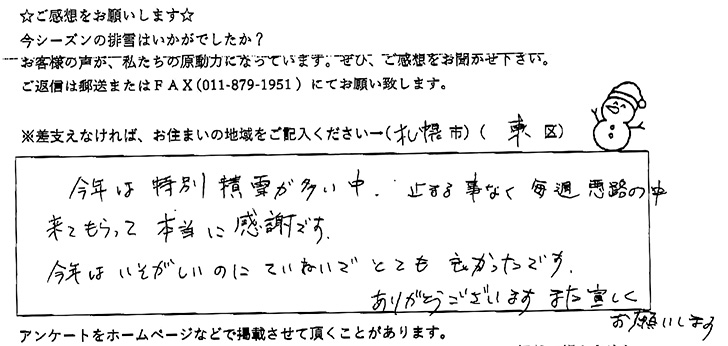 ☆ご感想をお願いします☆
今シーズンの排雪はいかがでしたか？
お客様の声が、私たちの原動力になっています。ぜひ、ご感想をお聞かせ下さい。
ご返信は郵送またはＦＡＸ(011-879-1951）にてお願い致します。
※差支えなければ、お住まいの地域をご記入ください→(札幌市）（東区）
今年は特別積雪が多い中、止まる事なく毎週悪路の中
来てもらって本当に感謝です。
今年はいそがしいのにていねいでとても良かったです。
ありがとうございます また宜しく
お願いします
アンケートをホームページなどで掲載させて頂くことがあります。